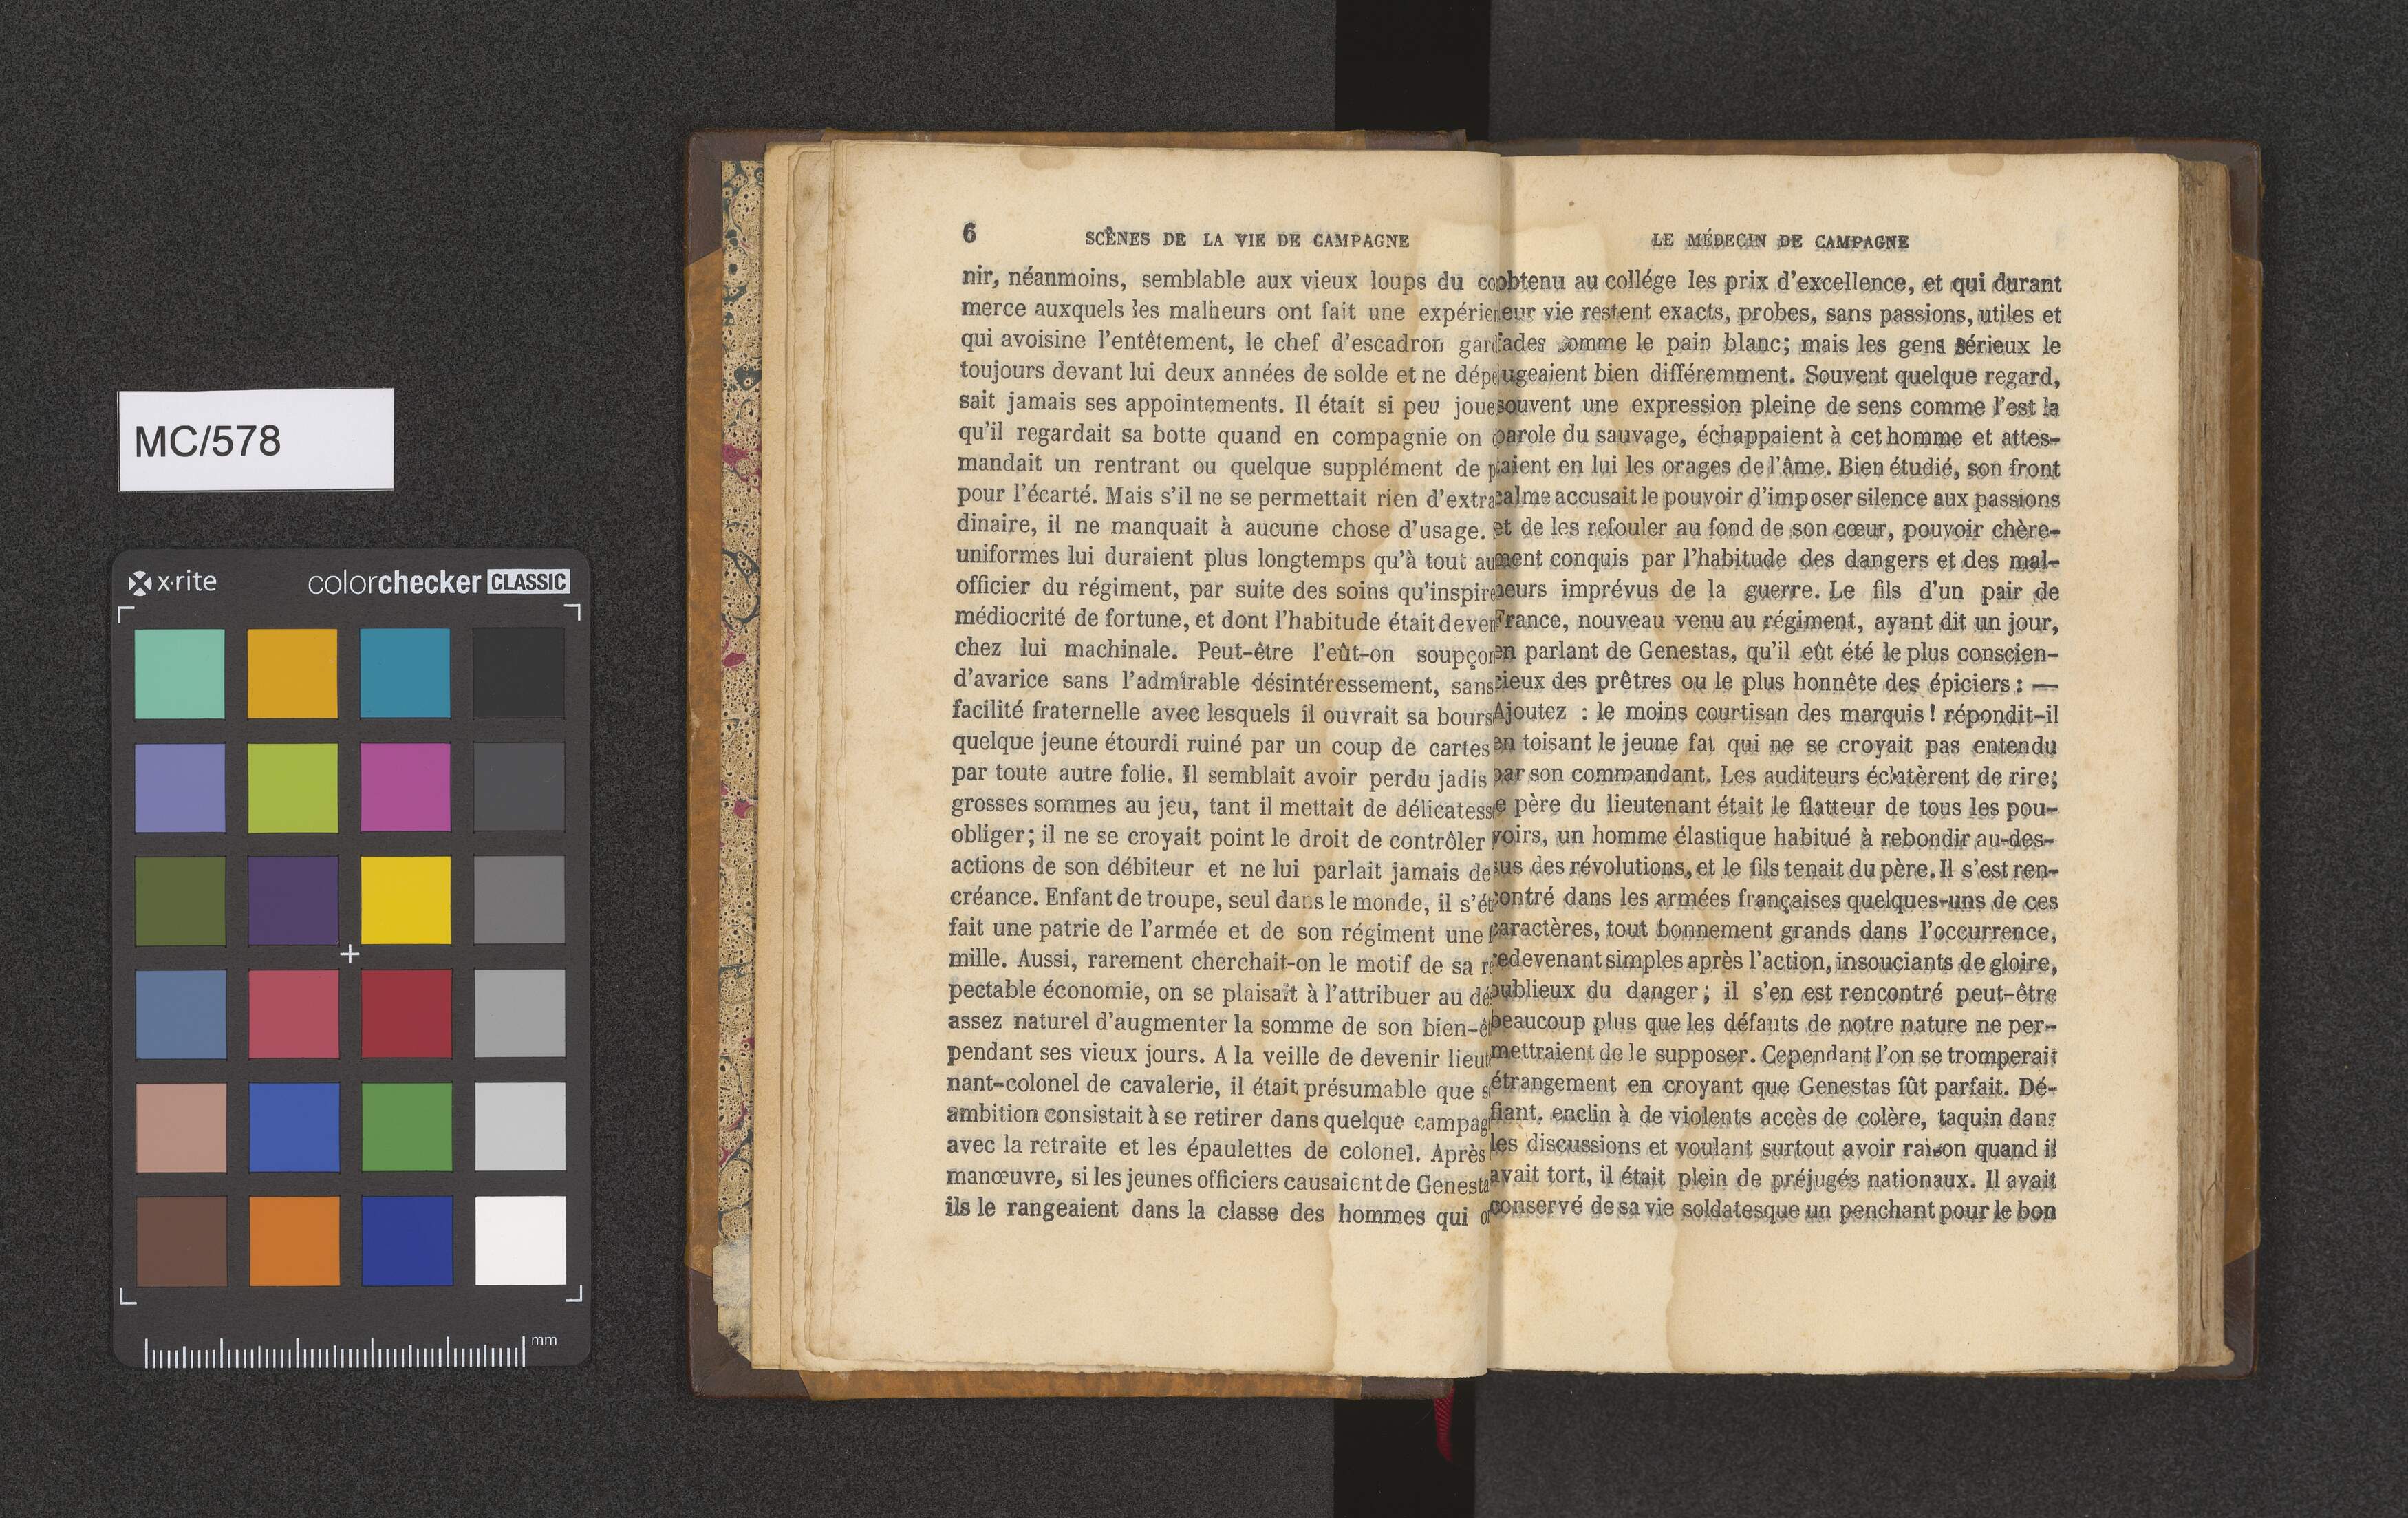 MC/578
x·rite
colorchecker CLASSIC
mm
6
SCÈNES DE LA VIE DE CAMPAGNE
nir, néanmoins, semblable aux vieux loups du
merce auxquels les malheurs ont fait une
qui avoisine l'entêtement, le chef d'escadron
toujours devant lui deux années de solde et ne
sait jamais ses appointements. Il était si peu
qu'il regardait sa botte quand en compagnie on
mandait un rentrant ou quelque supplément de
pour l'écarté. Mais s'il ne se permettait rien
dinaire, il ne manquait à aucune chose d'usage.
uniformes lui duraient plus longtemps qu'à tout
officier du régiment, par suite des soins
médiocrité de fortune, et dont l'habitude était
chez lui machinale. Peut-être l'eût-on
d'avarice sans l'admirable désintéressement, sans
facilité fraternelle avec lesquels il ouvrait sa
quelque jeune étourdi ruiné par un coup de cartes
par toute autre folie. Il semblait avoir perdu jadis
grosses sommes au jeu, tant il mettait de
obliger; il ne se croyait point le droit de contrôler
actions de son débiteur et ne lui parlait jamais de
créance. Enfant de troupe, seul dans le monde, il
fait une patrie de l'armée et de son régiment une
mille. Aussi, rarement cherchait-on le motif de sa
pectable économie, on se plaisait à l'attribuer au
assez naturel d'augmenter la somme de son
pendant ses vieux jours. A la veille de devenir
nant-colonel de cavalerie, il était présumable que
ambition consistait à se retirer dans quelque
avec la retraite et les épaulettes de colonel. Après
manœuvre, si les jeunes officiers causaient de
ils le rangeaient dans la classe des hommes qui
LE MÉDECIN DE CAMPAGNE
obtenu au collége les prix d'excellence, et qui durant
vie restent exacts, probes, sans passions, utiles et
fades comme le pain blanc; mais les gens sérieux le
jugeaient bien différemment. Souvent quelque regard,
souvent une expression pleine de sens comme l'est la
parole du sauvage, échappaient à cet homme et attes-
taient en lui les orages de l'âme. Bien étudié, son front
calme accusait le pouvoir d'imposer silence aux passions
et de les refouler au fond de son cœur, pouvoir chère-
ment conquis par l'habitude des dangers et des mal-
heurs imprévus de la guerre. Le fils d'un pair de
France, nouveau venu au régiment, ayant dit un jour,
en parlant de Genestas, qu'il eût été le plus conscien-
cieux des prêtres ou le plus honnête des épiciers : —
Ajoutez : le moins courtisan des marquis ! répondit-il
en toisant le jeune fat qui ne se croyait pas entendu
par son commandant. Les auditeurs éclatèrent de rire;
père du lieutenant était le flatteur de tous les pou-
voirs, un homme élastique habitué à rebondir au-des-
sus des révolutions, et le fils tenait du père. Il s'est ren-
contré dans les armées françaises quelques-uns de ces
caractères, tout bonnement grands dans l'occurrence,
redevenant simples après l'action, insouciants de gloire,
oublieux du danger; il s'en est rencontré peut-être
beaucoup plus que les défauts de notre nature ne per-
mettraient de le supposer. Cependant l'on se tromperait
étrangement en croyant que Genestas fût parfait. Dé-
fiant, enclin à de violents accès de colère, taquin dans
les discussions et voulant surtout avoir raison quand il
avait tort, il était plein de préjugés nationaux. Il avait
conservé de sa vie soldatesque un penchant pour le bon